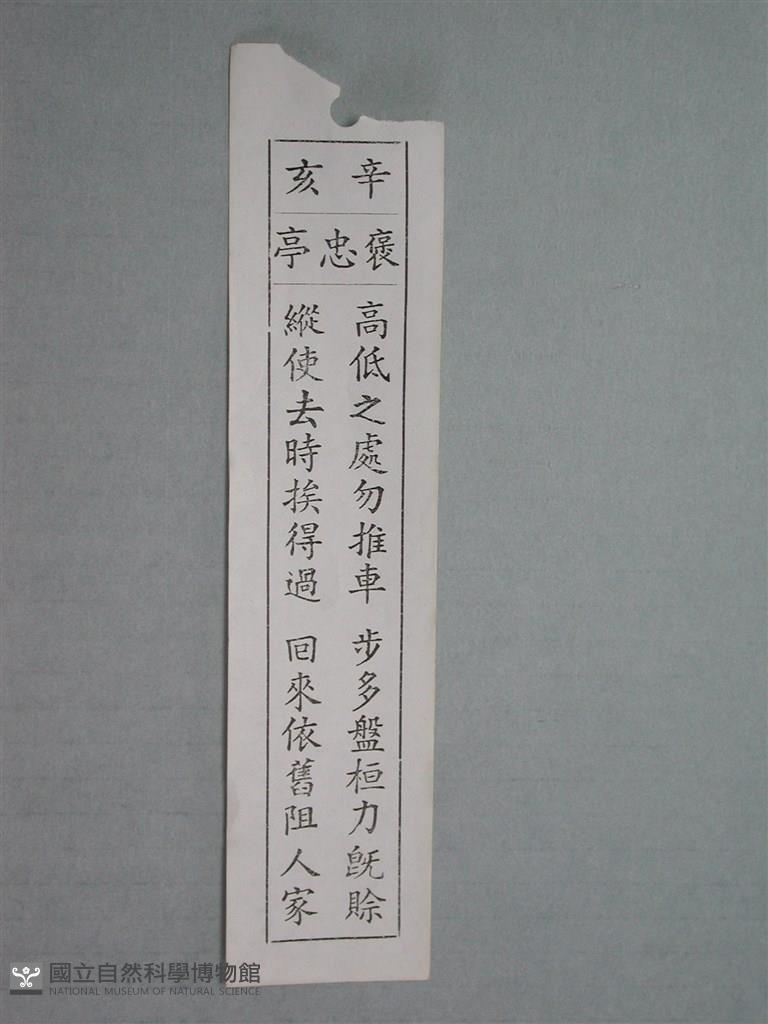 辛亥
褒忠亭
高低之處勿推車 步多盤桓力旣賒
縱使去時挨得過 回來依舊阻人家
國立自然科學博物館
NATIONAL MUSEUM OF NATURAL SCIENCE